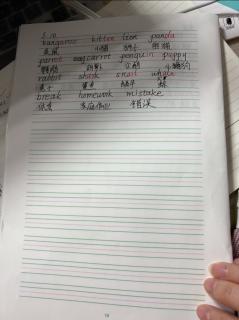 5.10
kangaroo kitten lion panda
袋鼠 小猫 狮子 熊猫
parrot carrot penguin puppy
鹦鹉 胡萝卜 企鹅 小狗
rabbit shark snail whale
兔子 鲨鱼 蜗牛 鲸
break homework mistake
休息 家庭作业 错误